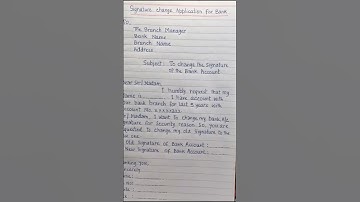 Signature change Application for Bank
To,
The Branch Manager
Bank Name
Branch Name
Address
Subject: To change the signature
of the Bank Account
Sir/Madam,
I humbly request that my
Name is .......... I have account with
bank branch for last 5 years with
account No.
Sir/Madam, I want to change my bank A/c
signature for Security reason. So, you are
requested to change my old Signature to the
Old Signature of Bank Account :
New Signature of Bank Account :
you